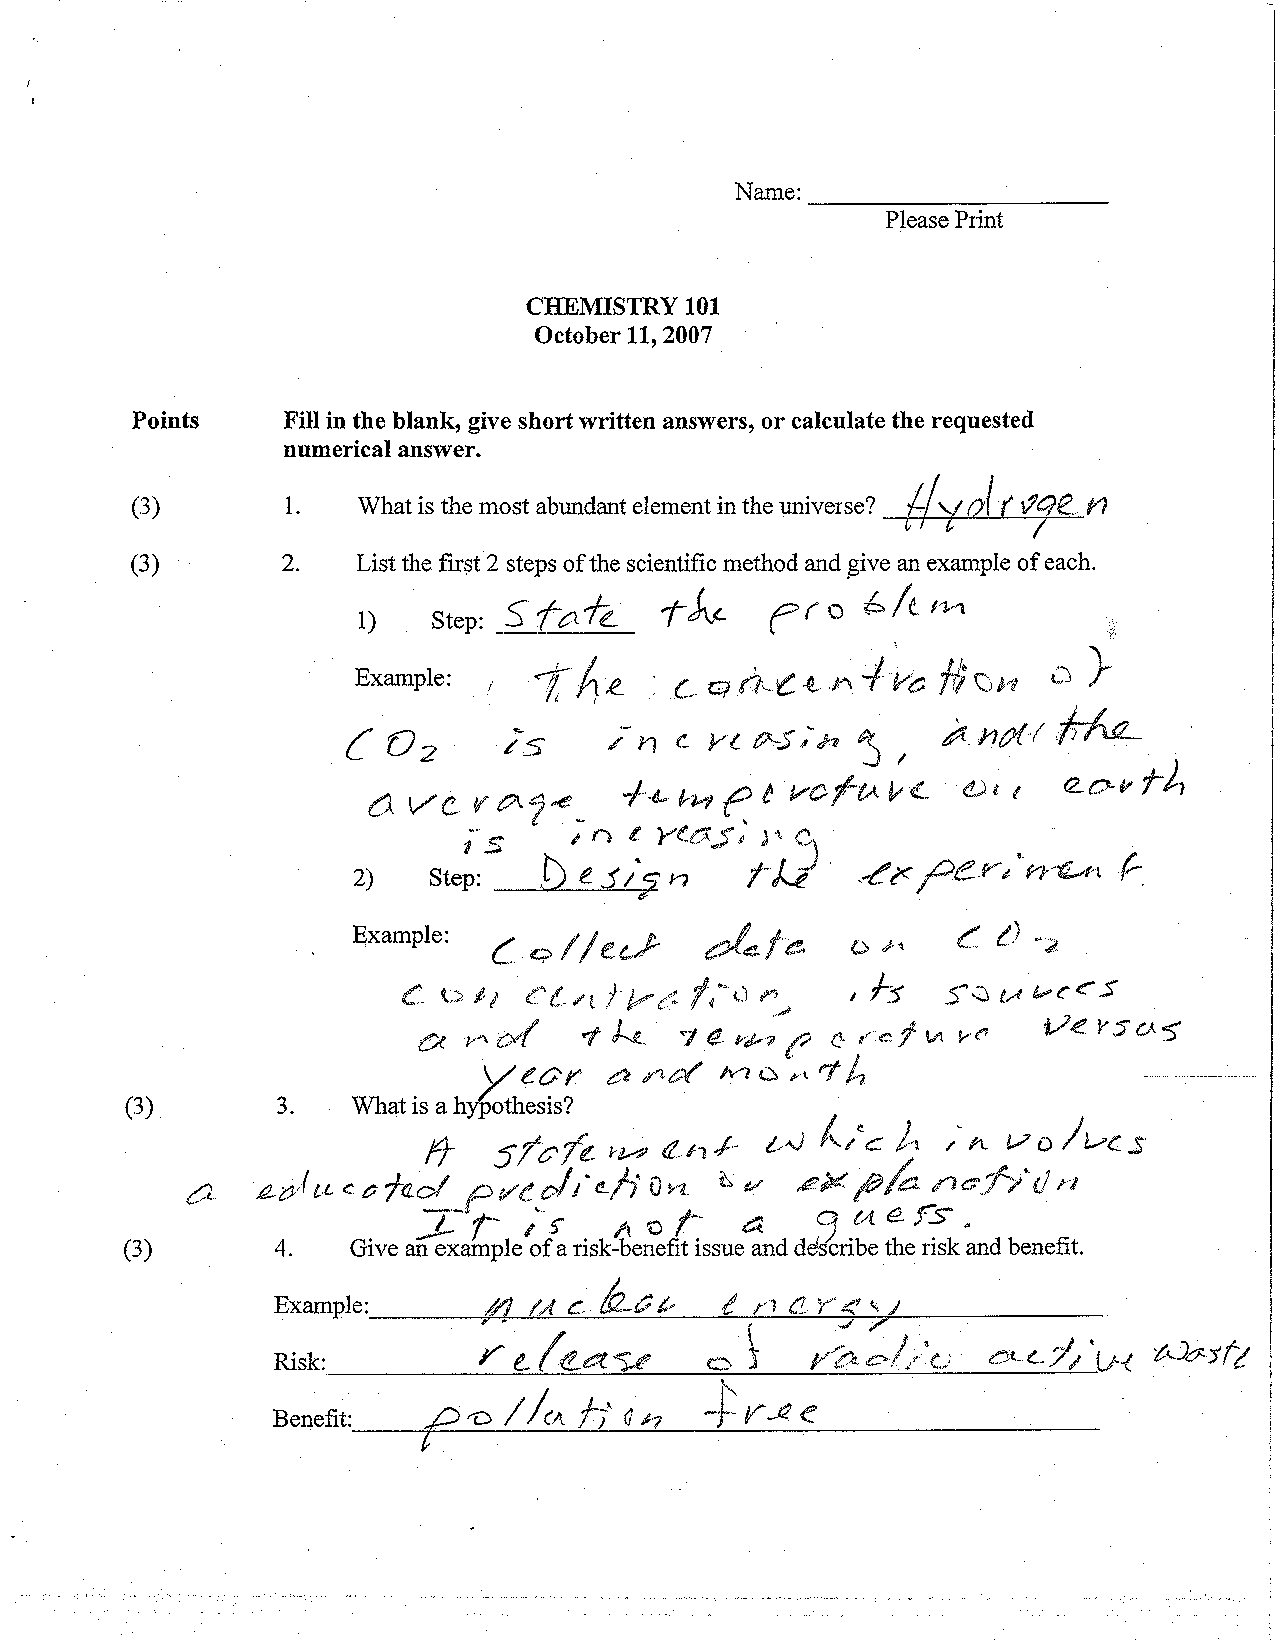 Name:
Please Print
CHEMISTRY 101
October 11, 2007
Points Fill in the blank, give short written answers, or calculate the requested
numerical answer.
(3) 1. What is the most abundant element in the universe? Hydrogen
(3) 2. List the first 2 steps of the scientific method and give an example of each.
1) Step: State the problem
Example: The concentration of
CO2 is increasing, and the
average temperature on earth
is increasing
2) Step: Design the experiment
Example: Collect data on CO2
concentration, its sources
and the temperature versus
year and month
(3) 3. What is a hypothesis?
A statement which involves
a educated prediction or explanation
It is not a guess.
(3) 4. Give an example of a risk-benefit issue and describe the risk and benefit.
Example: nuclear energy
Risk: release of radio active waste
Benefit: pollution free